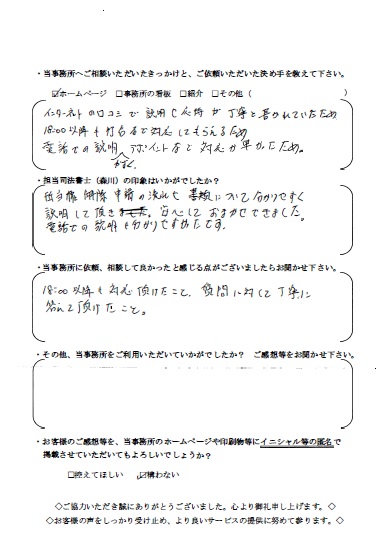 ・当事務所へご相談いただいたきっかけと、ご依頼いただいた決め手を教えて下さい。
☑ホームページ　□事務所の看板　□紹介　□その他（　　　　　　　　）
インターネットの口コミで説明や応対が丁寧と書かれていたため
18:00以降も打合せ等で対応してもらえるため
電話での説明、アポイントなど対応が早かったため。
・担当司法書士（森川）の印象はいかがでしたか？
申請の流れや書類について分かりやすく
説明して頂きました。安心しておまかせできました。
電話での説明も分かりやすかったです。
・当事務所に依頼、相談して良かったと感じる点がございましたらお聞かせ下さい。
18:00以降も対応頂けたこと、質問に対して丁寧に
答えて頂けたこと。
・その他、当事務所をご利用いただいていかがでしたか？　ご感想等をお聞かせ下さい。
・お客様のご感想等を、当事務所のホームページや印刷物等にイニシャル等の匿名で
掲載させていただいてもよろしいでしょうか？
□控えてほしい　☑構わない
◇ご協力いただき誠にありがとうございました。心より御礼申し上げます。◇
◇お客様の声をしっかり受け止め、より良いサービスの提供に努めて参ります。◇